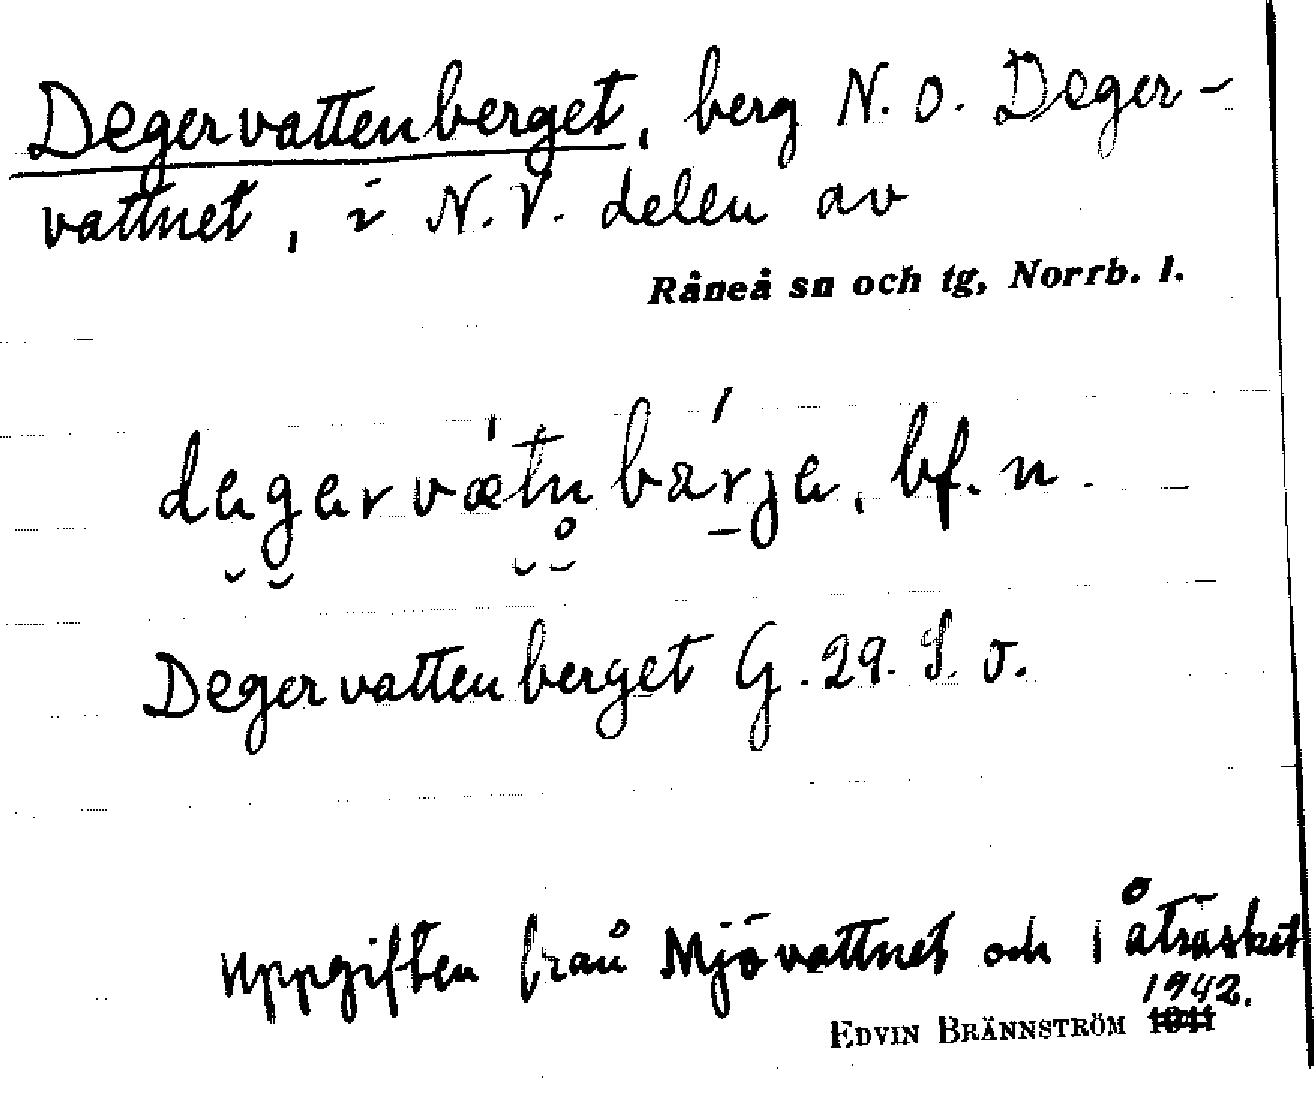 Degervattenberget, berg N. O. Deger-
vattnet, i N.V. delen av
Råneå sn och tg, Norrb. l.
bf. n.
Degervattenberget G. 29. S. v.
Uppgiften från Mjövattnet och
1942.
EDVIN BRÄNNSTRÖM 1941